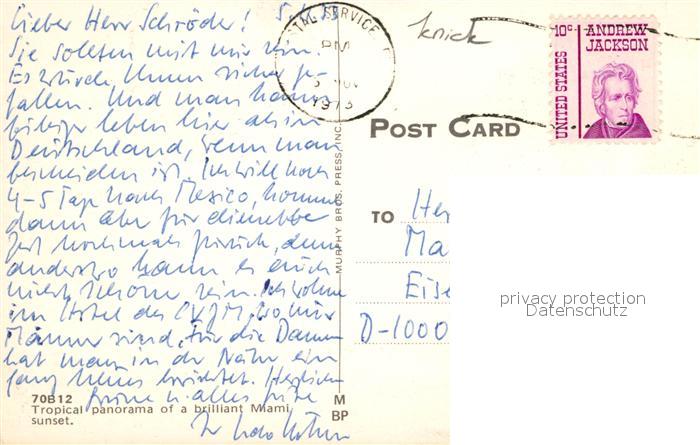 Lieber Herr Schröder!
Sie sollten mit mir sein.
Es würde Ihnen sicher ge-
fallen. Und man kann
billiger leben hier als in
Deutschland, wenn man
bescheiden ist. Ich will noch
4-5 Tage nach Mexico, komme
dann aber für dieselbe
Zeit nochmals zurück, denn
anderswo kann es auch
nicht schöner sein. Ich wohne
im Hotel des CVJM, wo nur
Männer sind, für die Damen
hat man in der Nähe ein
ganz neues errichtet. Herzliche
Grüße u. alles Gute
Ihr
70B12
Tropical panorama of a brilliant Miami
sunset.
MURPHY BROS. PRESS, INC.
M
BP
POSTAL SERVICE
PM
1973
knick
10c
ANDREW
JACKSON
UNITED STATES
POST CARD
TO
Her
Ma
Eise
D-1000
privacy protection
Datenschutz